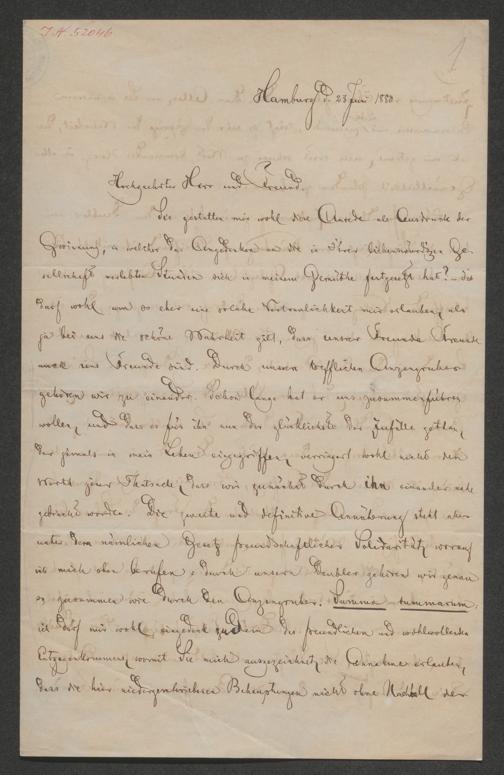 J.N. 52046
1
Hamburg d. 23 Juni 1880
Hochgeehrter Herr und Freund.
Sie gestatten mir wohl diese Anrede als Ausdruck der
Gesinnung, in welcher das Angedenken an die in Ihrer liebenswürdigen Ge-
sellschaft verlebten Stunden sich in meinem Gemüthe festgesetzt hat? – das
darf wohl um so eher eine solche Vertraulichkeit mir erlauben, als
ja bei uns die schöne Wahrheit gilt, dass unserer Freunde Freunde
auch uns Freunde sind. Durch unseren trefflichen Anzengruber
gehören wir zu einander. Schon lange hat er uns zusammenführen
wollen, und dass er für ihn nun der glücklichste der Zufälle gethan,
der jemals in mein Leben eingegriffen, verringert wohl nicht den
Werth jener Thatsache, dass wir zunächst durch ihn einander nahe
gebracht worden. Die zweite und definitive Annäherung steht aber
unter dem nämlichen Gesetz freundschaftlicher Solidarität, worauf
ich mich oben berufen: durch unseren gehören wir genau
so zusammen wie durch den Anzengruber. Summa summarum:
ich darf mir wohl, eingedenk zudem des freundlichen und wohlwollenden
Entgegenkommens, womit Sie mich ausgezeichnet, die Annahme erlauben,
dass die hier niedergeschriebenen Behauptungen nicht ohne Nachhall der